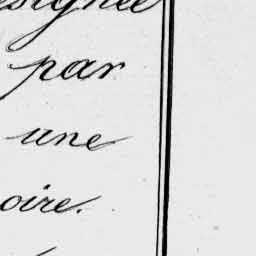 signée
par
une
oire.